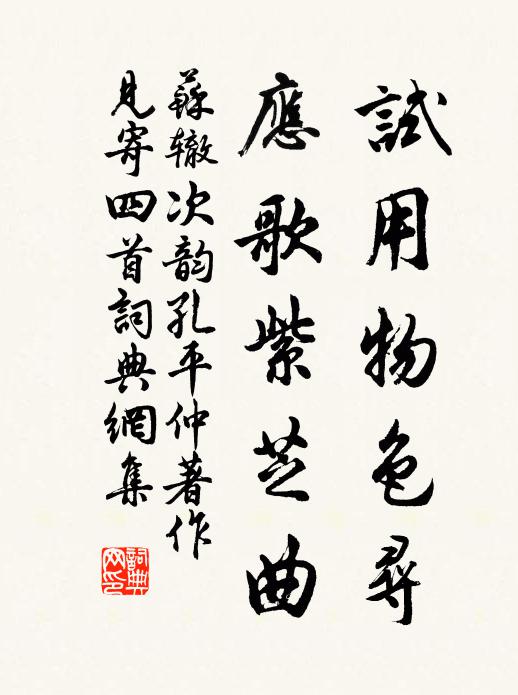 試用物色尋
應歌紫芝曲
蘇辙次韵孔平仲著作
見寄四首詞典網集
詞典
网印